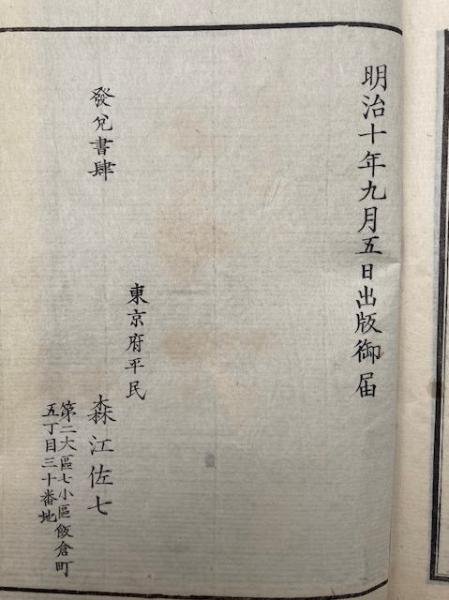 明治十年九月五日出版御届
東京府平民
發兌書肆
森江佐七
第二大區七小區飯倉町
五丁目三十番地